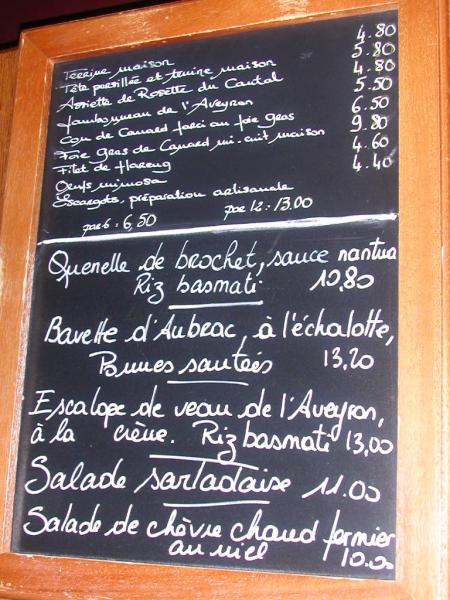 Terrine maison 4.80
Tête persillée et terrine maison 5.80
Assiette de Rosette du Cantal 4.80
Jambonneau de l'Aveyron 5.50
Cou de Canard farci au foie gras 6.50
Foie Gras de Canard mi-cuit maison 9.80
Filet de Hareng 4.60
Oeufs mimosa 4.40
Escargots, préparation artisanale
par 6 : 6,50 par 12 : 13.00
Quenelle de brochet, sauce nantua
Riz basmati 10,80
Bavette d'Aubrac, à l'échalotte,
Pommes sautées 13,20
Escalope de veau de l'Aveyron,
à la crème. Riz basmati 13,00
Salade sarladaise 11.00
Salade de chèvre chaud fermier
au miel 10.00